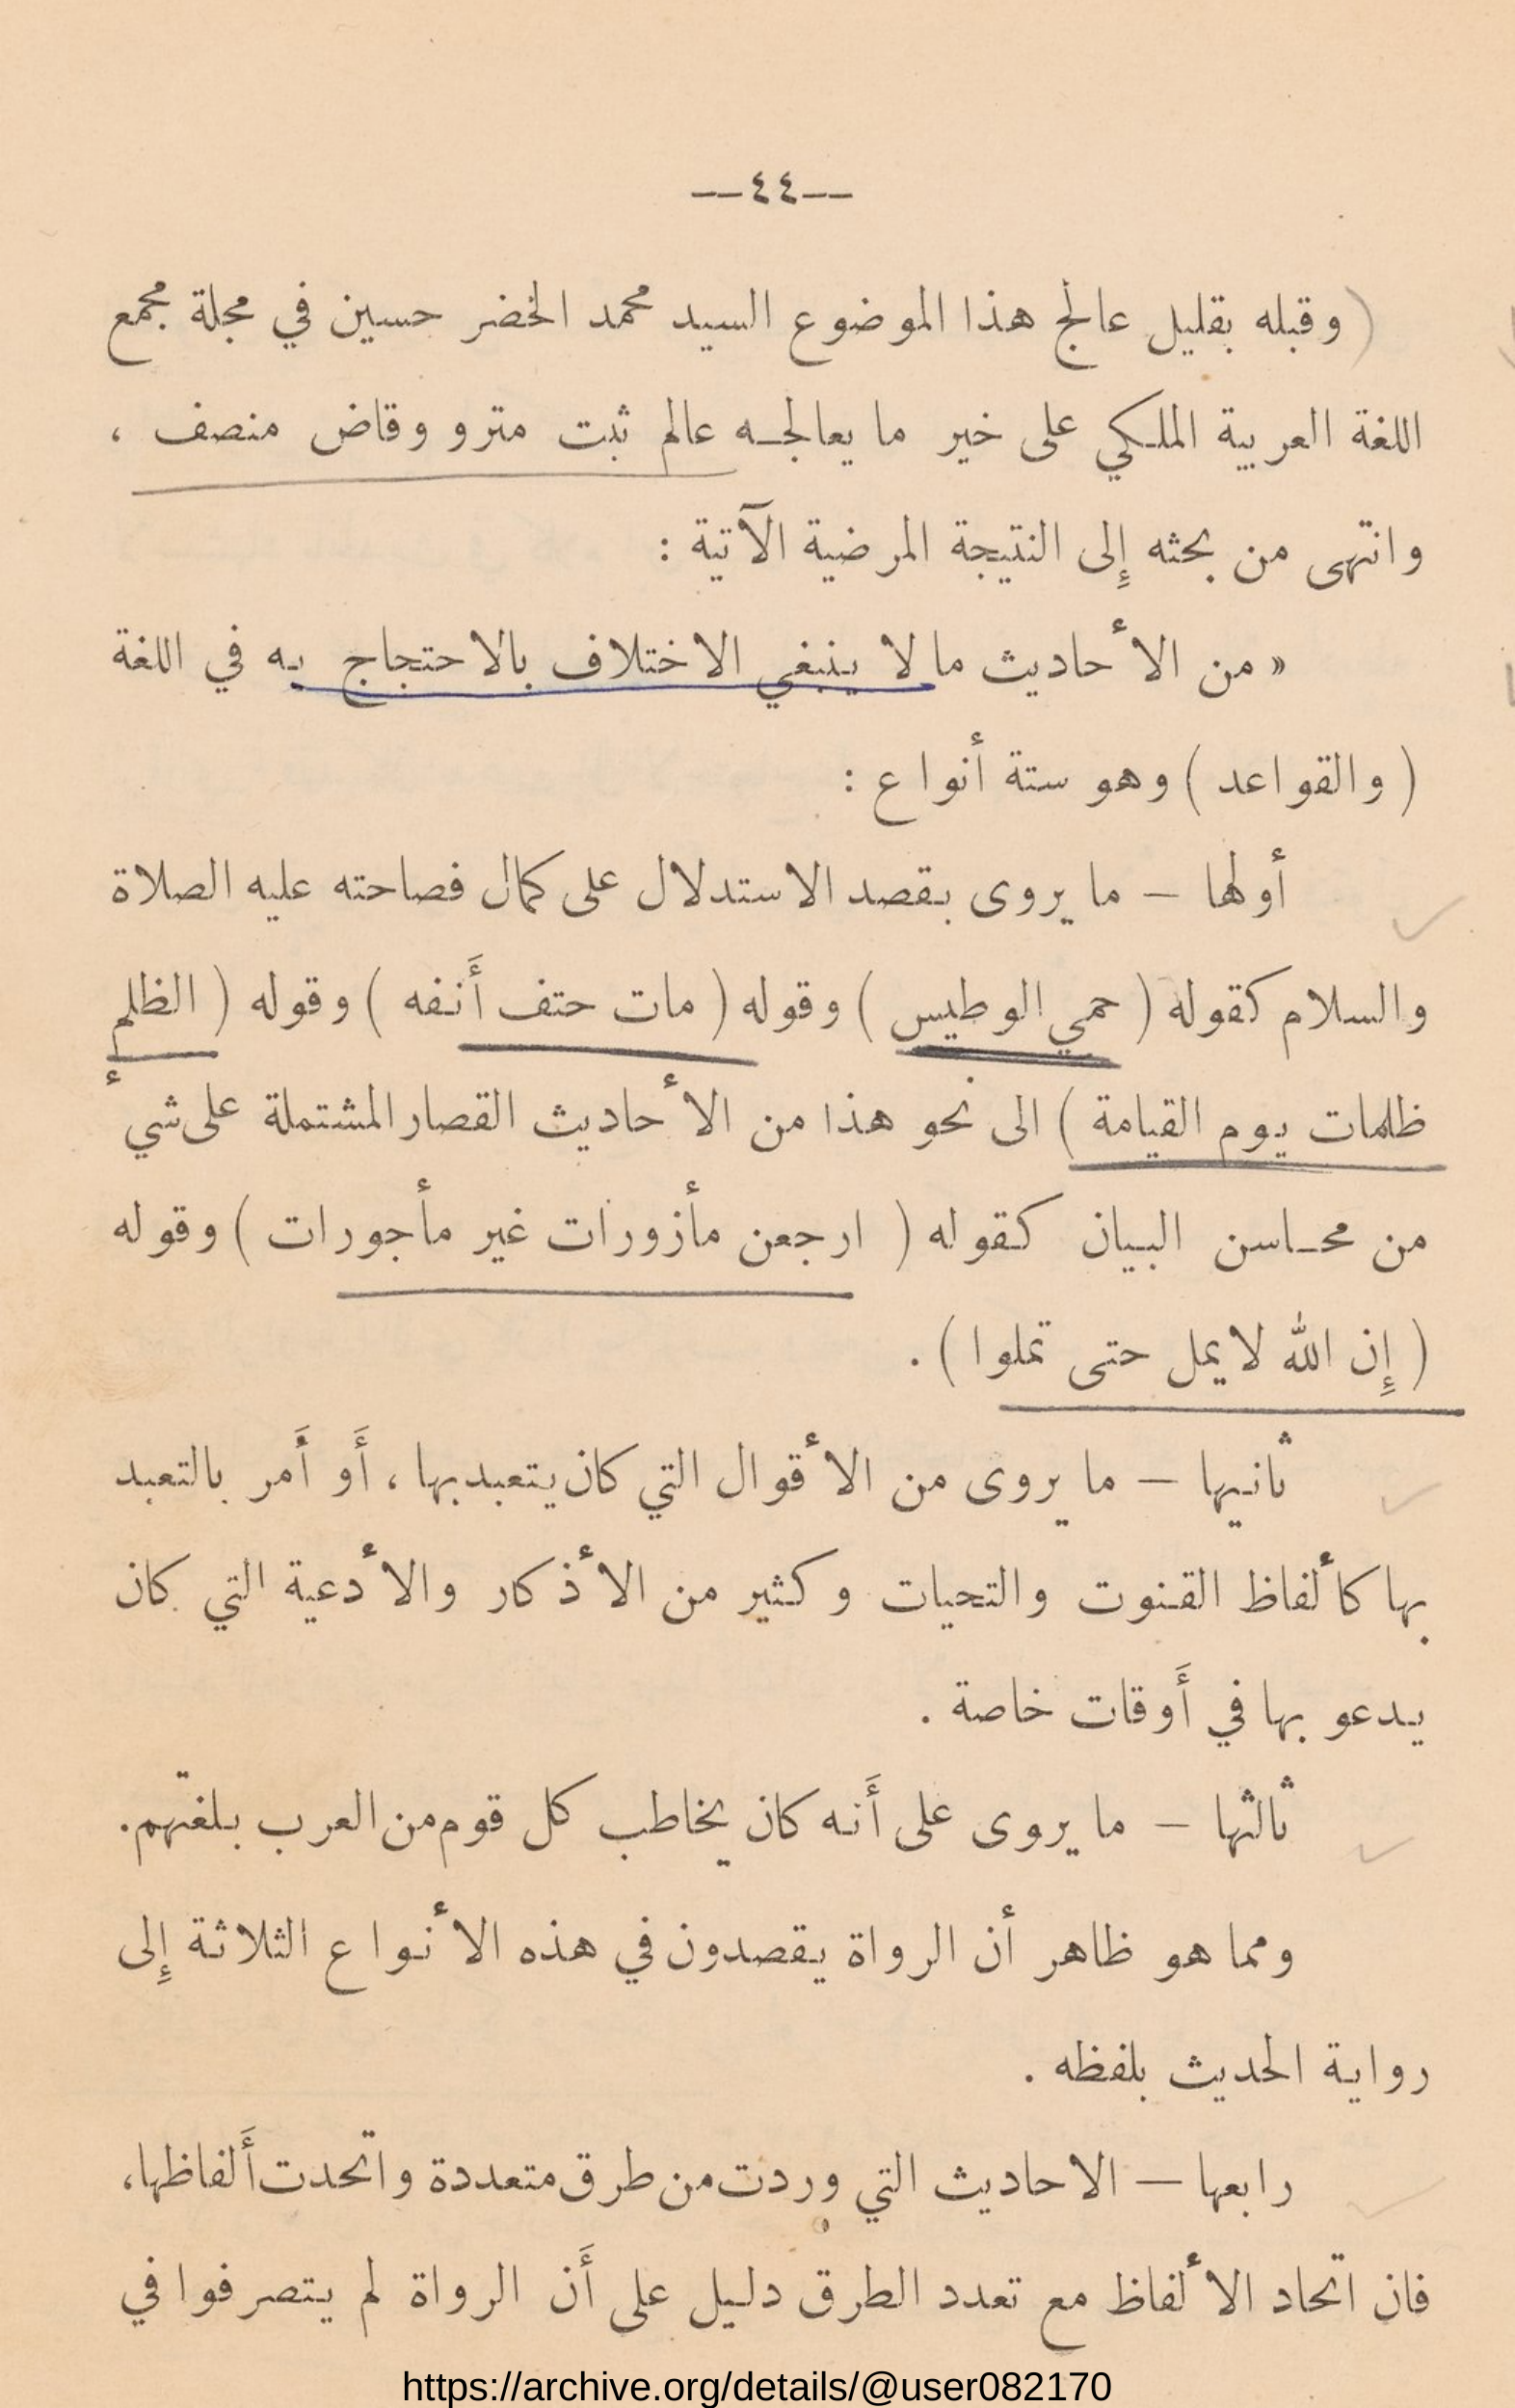 —٤٤—
(وقبله بقليل عالج هذا الموضوع السيد محمد الخضر حسين في مجلة مجمع
اللغة العربية الملكي على خير ما يعالجه عالم ثبت مترو وقاض منصف ،
وانتهى من بحثه إِلى النتيجة المرضية الآتية :
« من الأحاديث ما لا ينبغي الاختلاف بالاحتجاج به في اللغة
( والقواعد ) وهو ستة أنواع :
أولها — ما يروى بقصد الاستدلال على كمال فصاحته عليه الصلاة
والسلام كقوله ( حمي الوطيس ) وقوله ( مات حتف أَنفه ) وقوله ( الظلم
ظلمات يوم القيامة ) الى نحو هذا من الأحاديث القصار المشتملة على شيء
من محاسن البيان كقوله ( ارجعن مأزورات غير مأجورات ) وقوله
( إِن الله لا يمل حتى تملوا ) .
ثانيها — ما يروى من الأقوال التي كان يتعبد بها ، أَو أَمر بالتعبد
بها كألفاظ القنوت والتحيات وكثير من الأذكار والأدعية التي كان
يدعو بها في أَوقات خاصة .
ثالثها — ما يروى على أَنه كان يخاطب كل قوم من العرب بلغتهم.
ومما هو ظاهر أن الرواة يقصدون في هذه الأنواع الثلاثة إِلى
رواية الحديث بلفظه .
رابعها — الاحاديث التي وردت من طرق متعددة واتحدت أَلفاظها،
فان اتحاد الألفاظ مع تعدد الطرق دليل على أَن الرواة لم يتصرفوا في
https://archive.org/details/@user082170